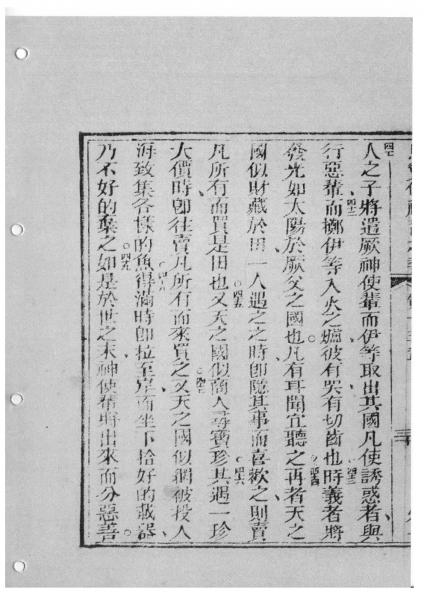 人之子將遣厥神使輩而伊等取出其國凡使誘惑者與
行惡輩而擲伊等入火之爐彼有哭有切齒也時義者將
發光如太陽於厥父之國也凡有耳聞宜聽之再者天之
國似財藏於田一人遇之之時即隱其事而喜歡之則賣
凡所有而買是田也又天之國似商人尋寶珍其遇一珍
大價時即往賣凡所有而來買之又天之國似網被投入
海致集各樣的魚得滿時即拉至岸而坐下拾好的載器
乃不好的棄之如是於世之末神使輩將出來而分惡善